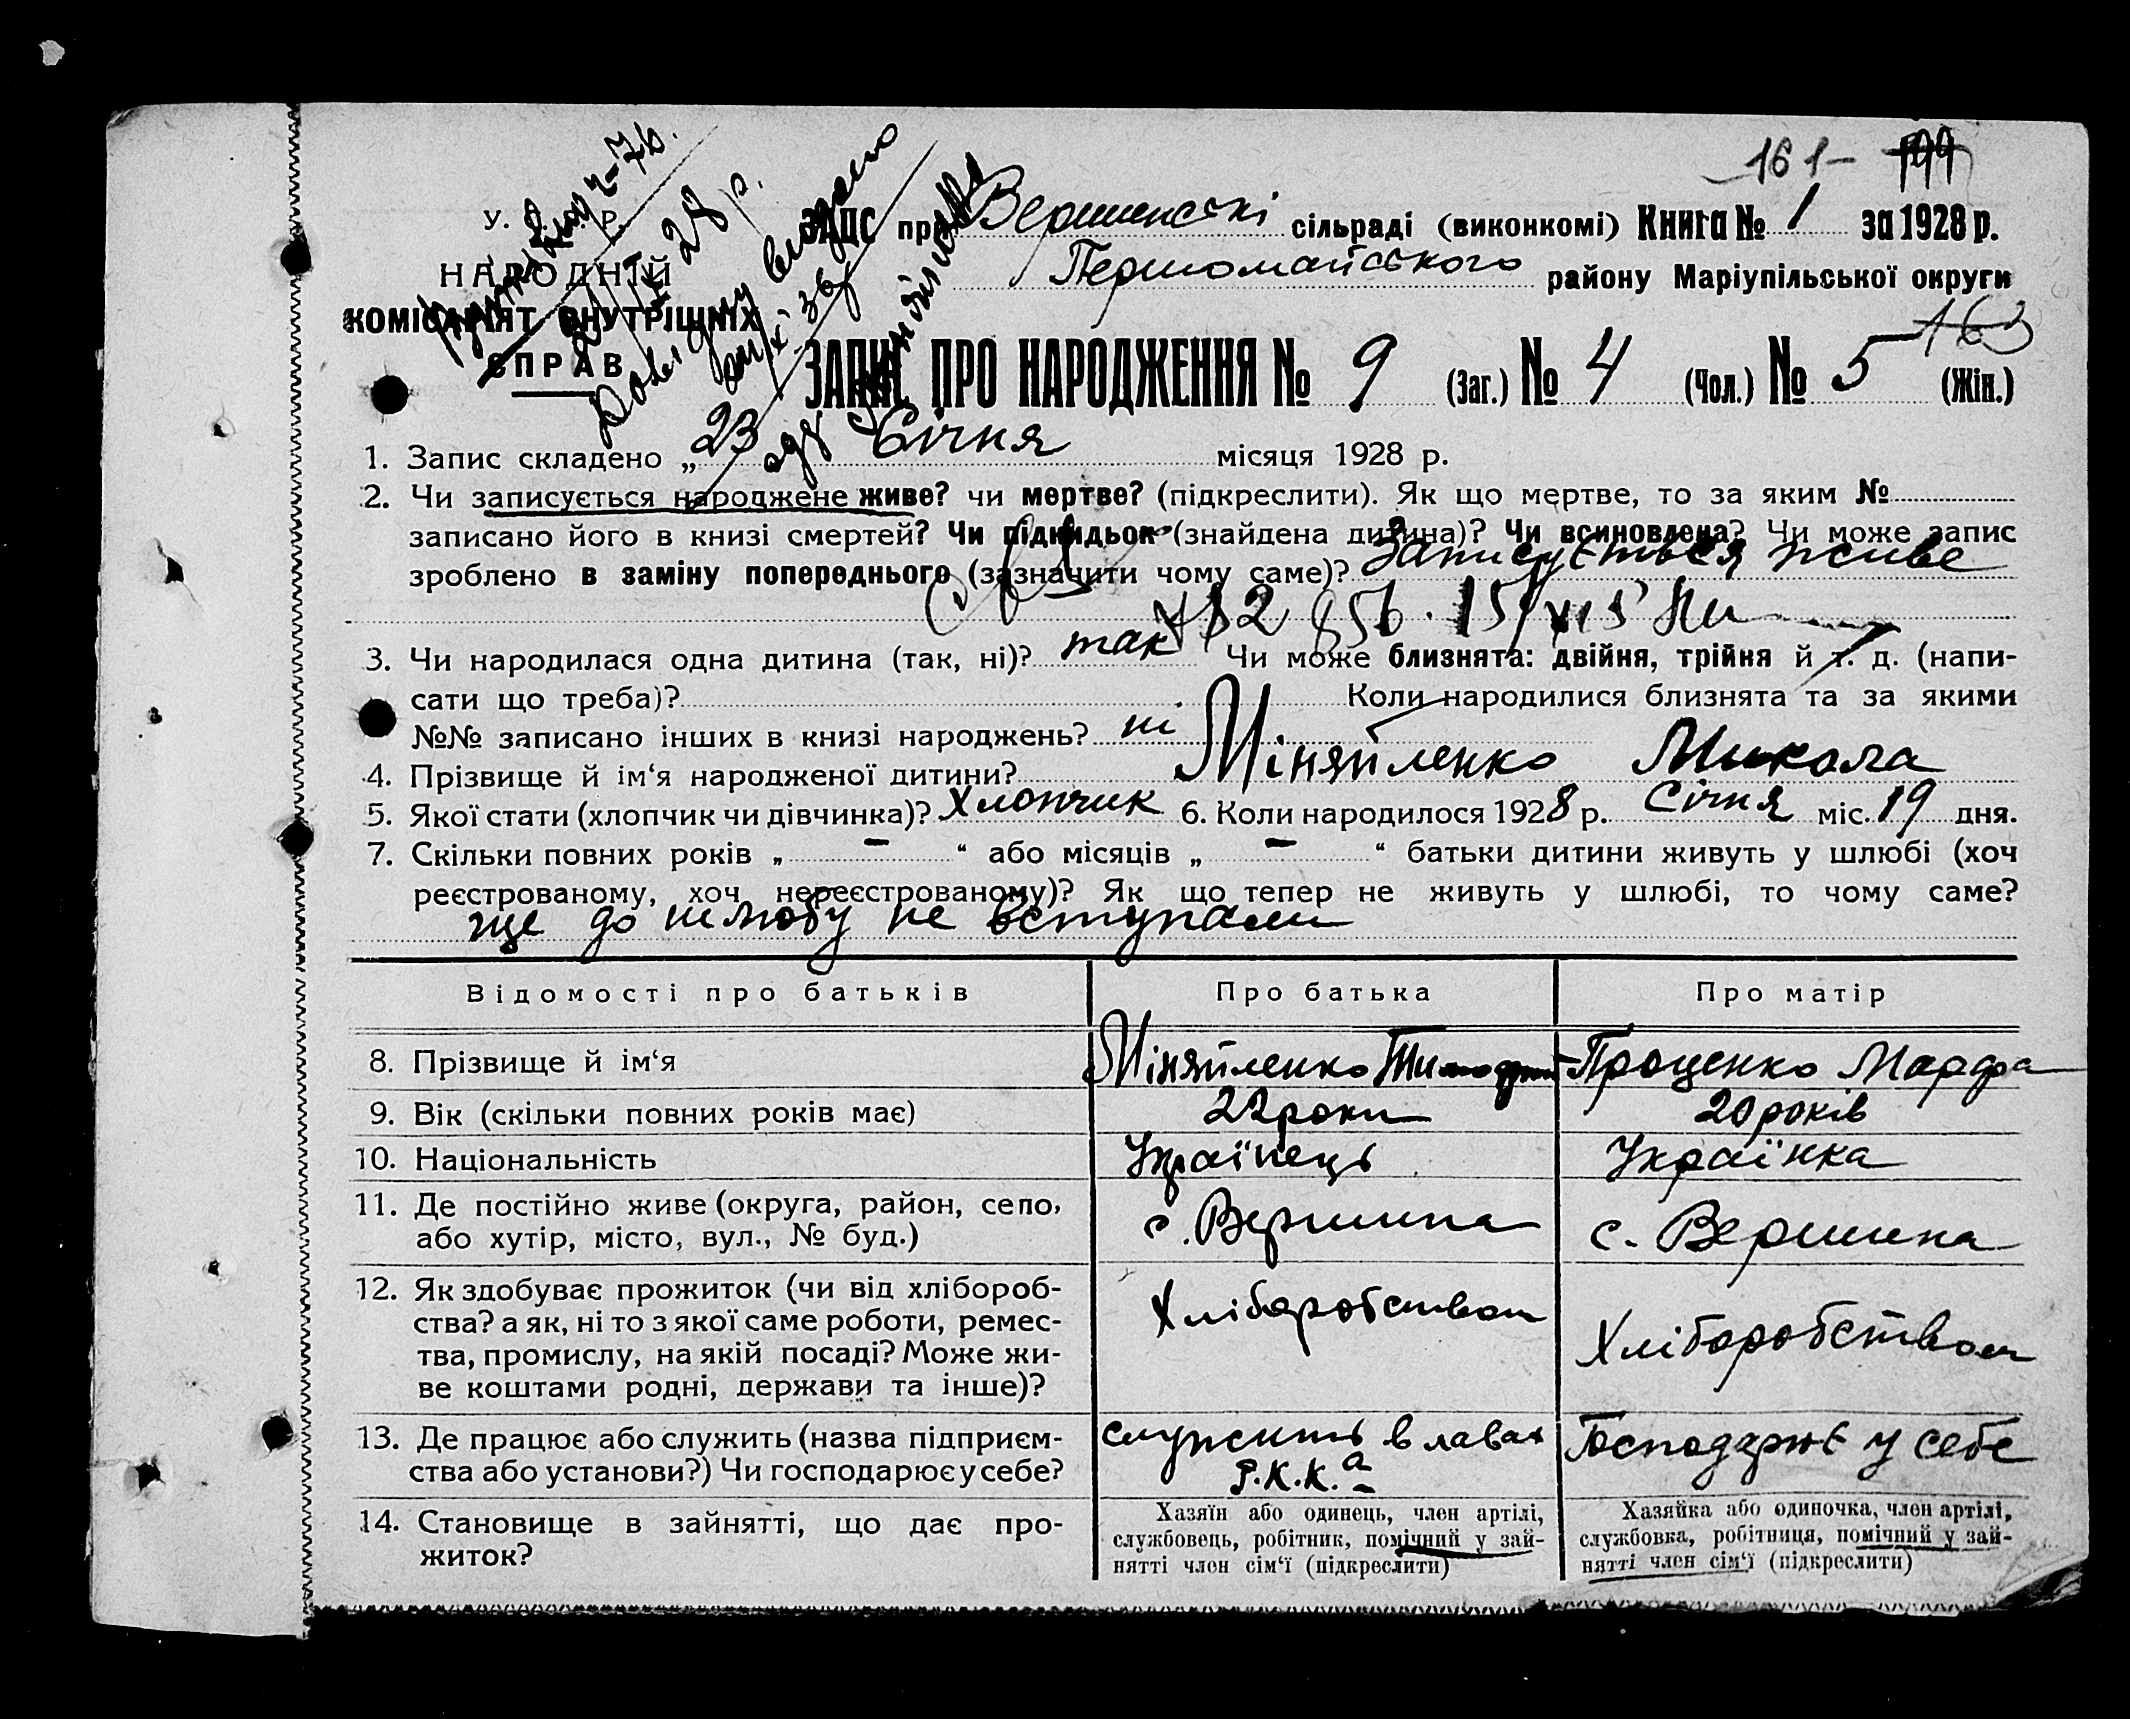 161- 199
У. С. Р. Р.
ЗАПС при Вершинські сільраді (виконкомі) Книга № 1 за 1928 р.
НАРОДНІЙ
Першомайського району Маріупільської округи
КОМІСАРІЯТ ВНУТРІШНІХ
СПРАВ
163
ЗАПИС ПРО НАРОДЖЕННЯ № 9 (Заг.) № 4 (Чол.) № 5 (Жін.)
1. Запис складено „ 23 Січня місяця 1928 р.
2. Чи записується народжене живе? чи мертве? (підкреслити). Як що мертве, то за яким №
записано його в книзі смертей? Чи підкидьок (знайдена дитина)? Чи всиновлена? Чи може запис
зроблено в заміну попереднього (зазначити чому саме)? Записується живе
3. Чи народилася одна дитина (так, ні)? так Чи може близнята: двійня, трійня й т. д. (напи-
сати що треба)? Коли народилися близнята та за якими
№№ записано інших в книзі народжень? ні
4. Прізвище й ім‘я народженої дитини? Міняйленко Микола
5. Якої стати (хлопчик чи дівчинка)? Хлопчик 6. Коли народилося 1928 р. Січня міс. 19 дня.
7. Скільки повних років „ – “ або місяців „ – “ батьки дитини живуть у шлюбі (хоч
реєстрованому, хоч нереєстрованому)? Як що тепер не живуть у шлюбі, то чому саме?
ще до шлюбу не вступали
Відомості про батьків Про батька Про матір
8. Прізвище й ім‘я Міняйленко Тимофій Проценко Марфа
9. Вік (скільки повних років має) 22 роки 20 років
10. Національність Українець Українка
11. Де постійно живе (округа, район, село,
або хутір, місто, вул., № буд.) с. Вершина с. Вершина
12. Як здобуває прожиток (чи від хлібороб-
ства? а як, ні то з якої саме роботи, ремес-
тва, промислу, на якій посаді? Може жи-
ве коштами родні, держави та інше)? Хліборобством Хліборобством
13. Де працює або служить (назва підприєм-
ства або установи?) Чи господарює у себе? служить в лавах Р.К.К.а Господарює у себе
14. Становище в зайнятті, що дає про-
житок?
Хазяїн або одинець, член артілі,
службовець, робітник, помічний у зай-
нятті член сім‘ї (підкреслити)
Хазяйка або одиночка, член артілі,
службовка, робітниця, помічний у зай-
нятті член сім‘ї (підкреслити)